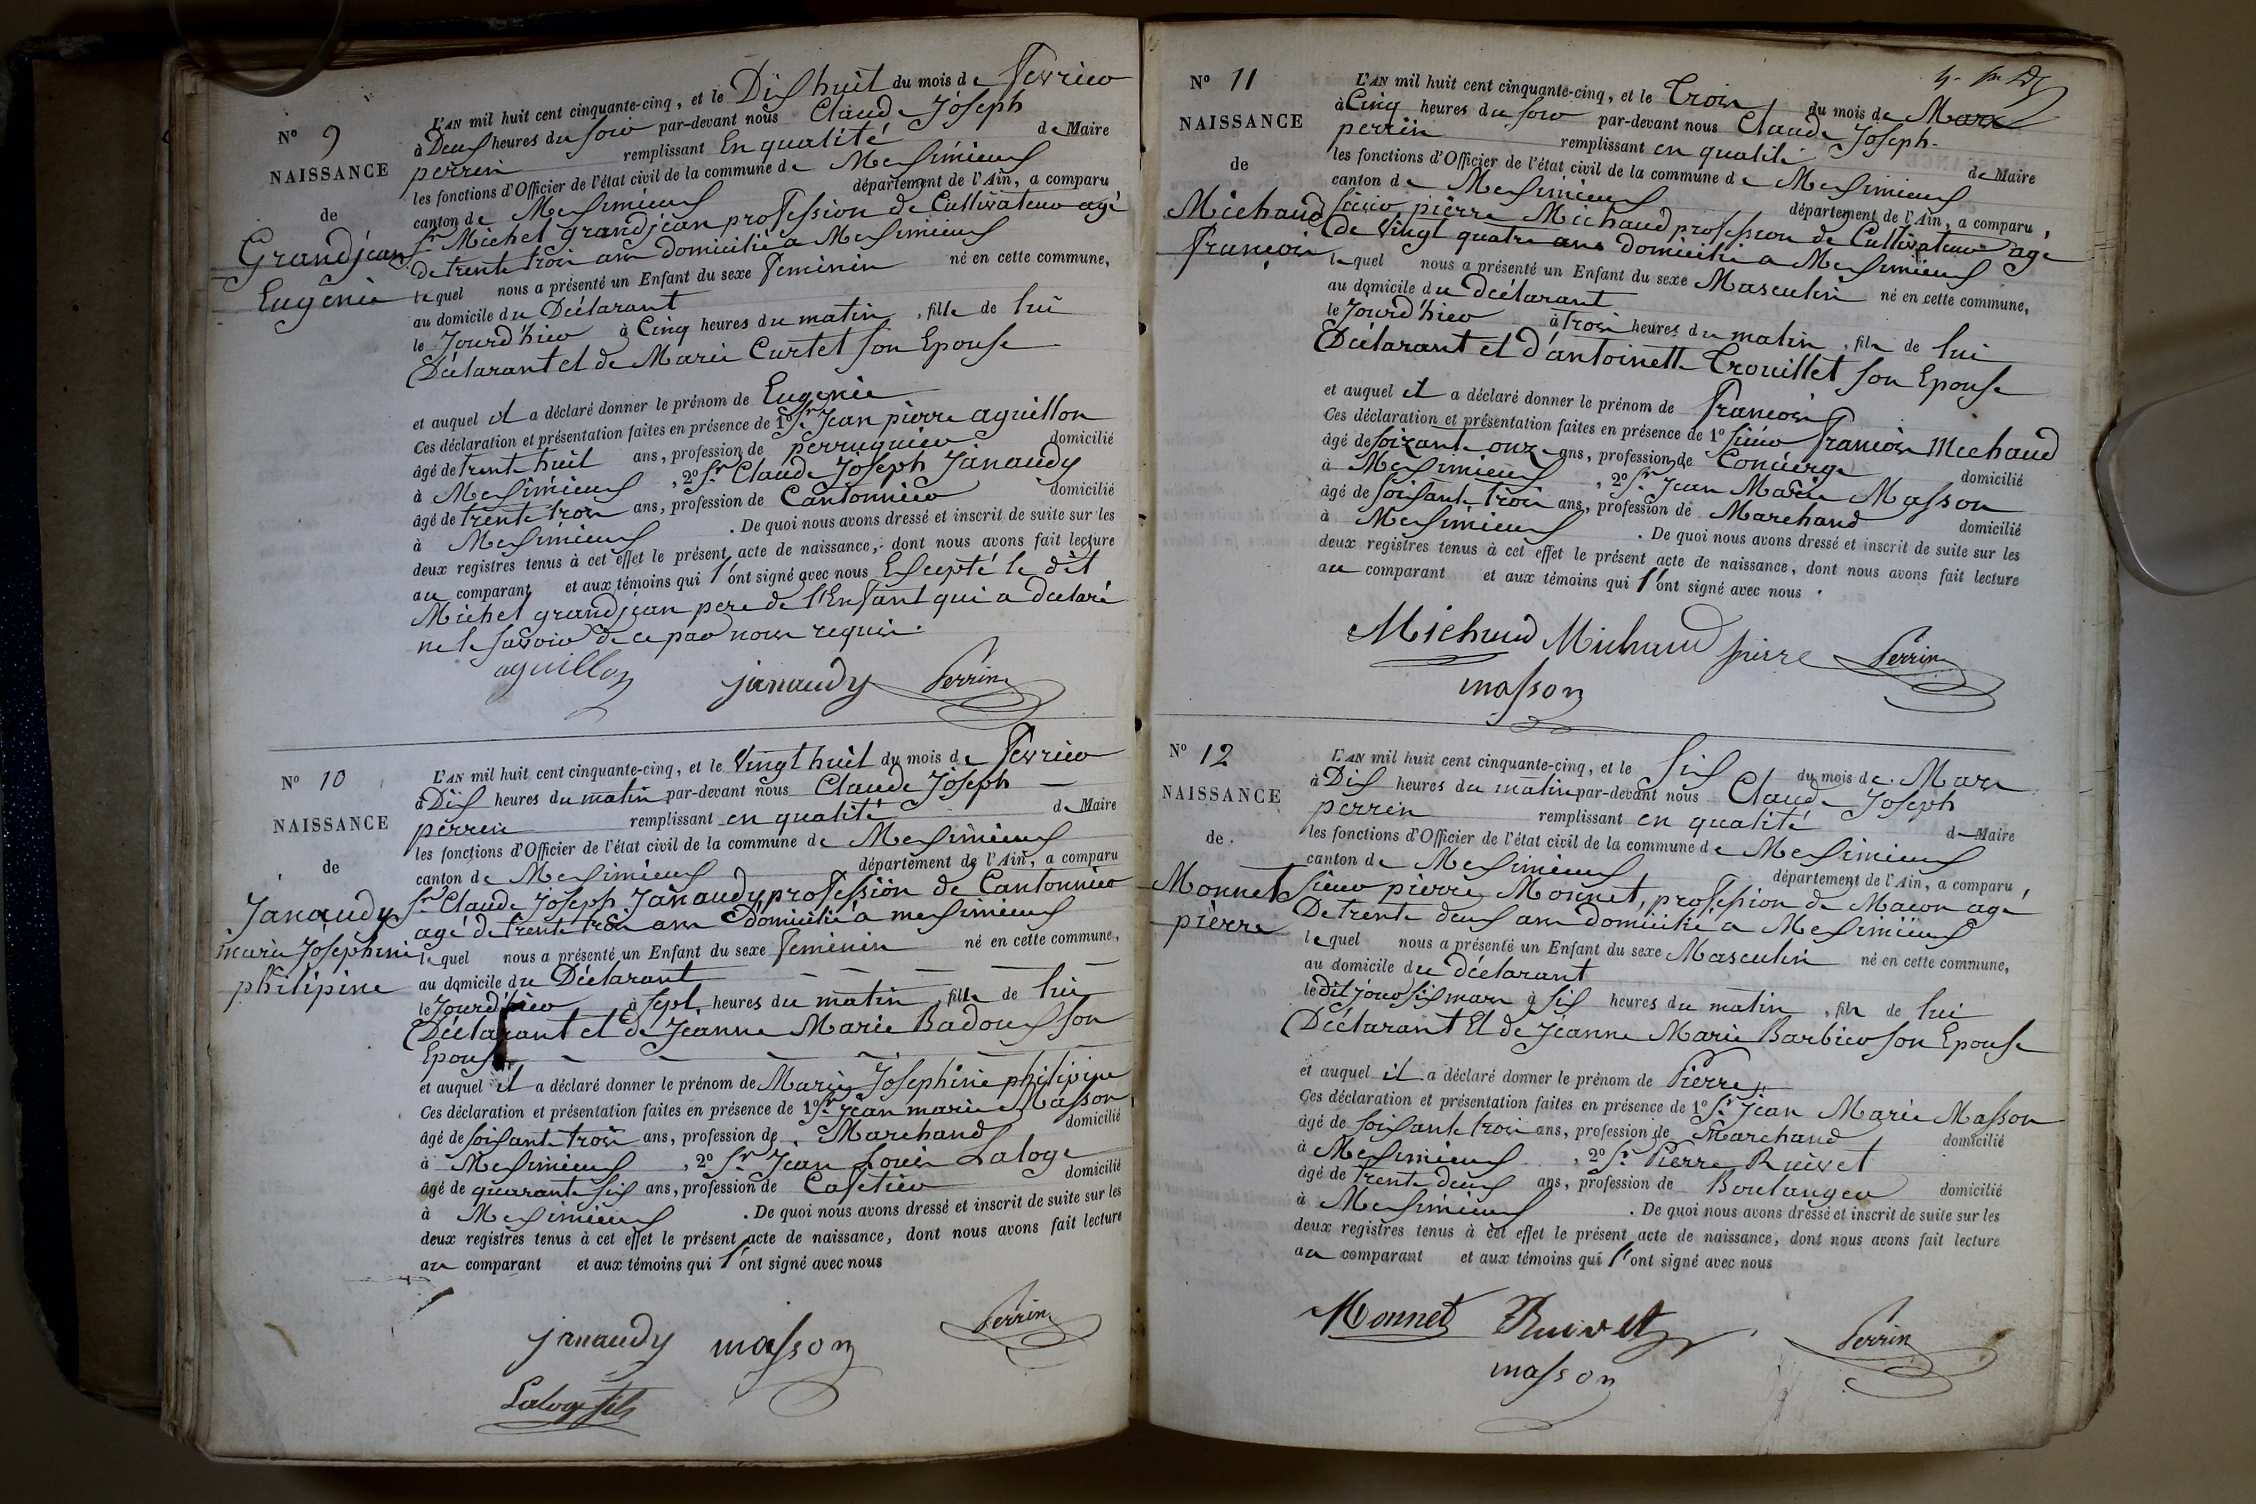 N° 9
NAISSANCE
de
Grandjean
Eugénie
L'AN mil huit cent cinquante-cinq, et le Dix huit du mois de Fevrier
à Deux heures du soir par-devant nous Claude Joseph
perrin remplissant En qualité de Maire
les fonctions d'Officier de l'état civil de la commune de Meximieux
canton de Meximieux département de l'Ain, a comparu
Sr Michel grandjean profession de Cultivateur agé
de trente trois ans domicilié a Meximieux
lequel nous a présenté un Enfant du sexe Feminin né en cette commune,
au domicile du Déclarant
le Jourd'hier à Cinq heures du matin, fille de lui
Déclarant et de Marie Curtet son Epouse
et auquel il a déclaré donner le prénom de Eugenie
Ces déclaration et présentation faites en présence de 1° Sr Jean pierre aguillon
âgé de trente huit ans, profession de perruquier domicilié
à Meximieux, 2° Sr Claude Joseph Janaudy
âgé de trente trois ans, profession de Cantonnier domicilié
à Meximieux. De quoi nous avons dressé et inscrit de suite sur les
deux registres tenus à cet effet le présent acte de naissance, dont nous avons fait lecture
au comparant et aux témoins qui l'ont signé avec nous Excepté le dit
Michel grandjean pere de l'Enfant qui a declaré
ne le savoir de ce par nous requis.
aguillon janaudy Perrin
N° 10
NAISSANCE
de
Janaudy
marie Joséphine
philipine
L'AN mil huit cent cinquante-cinq, et le Vingt huit du mois de Fevrier
à Dix heures du matin par-devant nous Claude Joseph
perrin remplissant en qualité de Maire
les fonctions d'Officier de l'état civil de la commune de Meximieux
canton de Meximieux département de l'Ain, a comparu
Sr Claude Joseph Janaudy, profession de Cantonnier
agé de trente trois ans domicilié a meximieux
lequel nous a présenté un Enfant du sexe Feminin né en cette commune,
au domicile du Déclarant
le Jourd'hier à sept heures du matin, fille de lui
Déclarant et de Jeanne Marie Badoux son
Epouse
et auquel il a déclaré donner le prénom de Marie Josephine philipine
Ces déclaration et présentation faites en présence de 1° Sr Jean marie Masson
âgé de soixante trois ans, profession de Marchand domicilié
à Meximieux, 2° Sr Jean Louis Laloge
âgé de quarante six ans, profession de Cafetier domicilié
à Meximieux. De quoi nous avons dressé et inscrit de suite sur les
deux registres tenus à cet effet le présent acte de naissance, dont nous avons fait lecture
au comparant et aux témoins qui l'ont signé avec nous
janaudy masson Perrin
Laloge fils
N° 11
NAISSANCE
de
Michaud
françois
L'AN mil huit cent cinquante-cinq, et le Trois du mois de Mars
à Cinq heures du soir par-devant nous Claude Joseph
perrin remplissant en qualité de Maire
les fonctions d'Officier de l'état civil de la commune de Meximieux
canton de Meximieux département de l'Ain, a comparu,
sieur pierre Michaud profession de Cultivateur agé
de Vingt quatre ans domicilié a Meximieux
lequel nous a présenté un Enfant du sexe Masculin né en cette commune,
au domicile du déclarant
le Jourd'hier à trois heures du matin, fils de lui
Déclarant et d'antoinette Trouillet son Epouse
et auquel il a déclaré donner le prénom de François
Ces déclaration et présentation faites en présence de 1° sieur François Michaud
âgé de soixante onze ans, profession de Concierge domicilié
à Meximieux, 2° Sr Jean Marie Masson
âgé de soixante trois ans, profession de Marchand domicilié
à Meximieux. De quoi nous avons dressé et inscrit de suite sur les
deux registres tenus à cet effet le présent acte de naissance, dont nous avons fait lecture
au comparant et aux témoins qui l'ont signé avec nous.
Michaud Michaud pierre Perrin
masson
N° 12
NAISSANCE
de
Monnet
pierre
L'AN mil huit cent cinquante-cinq, et le Six du mois de Mars
à Dix heures du matin par-devant nous Claude Joseph
perrin remplissant en qualité de Maire
les fonctions d'Officier de l'état civil de la commune de Meximieux
canton de Meximieux département de l'Ain, a comparu,
sieur pierre Monnet, profession de Macon agé
De trente deux ans domicilié a Meximieux
lequel nous a présenté un Enfant du sexe Masculin né en cette commune,
au domicile du déclarant
le dit jour six mars à six heures du matin, fils de lui
Déclarant Et de Jeanne Marie Barbier son Epouse
et auquel il a déclaré donner le prénom de Pierre
Ces déclaration et présentation faites en présence de 1° Sr Jean Marie Masson
âgé de soixante trois ans, profession de Marchand domicilié
à Meximieux, 2° Sr Pierre Ruivet
âgé de trente deux ans, profession de Boulanger domicilié
à Meximieux. De quoi nous avons dressé et inscrit de suite sur les
deux registres tenus à cet effet le présent acte de naissance, dont nous avons fait lecture
au comparant et aux témoins qui l'ont signé avec nous
Monnet Ruivet Perrin
masson